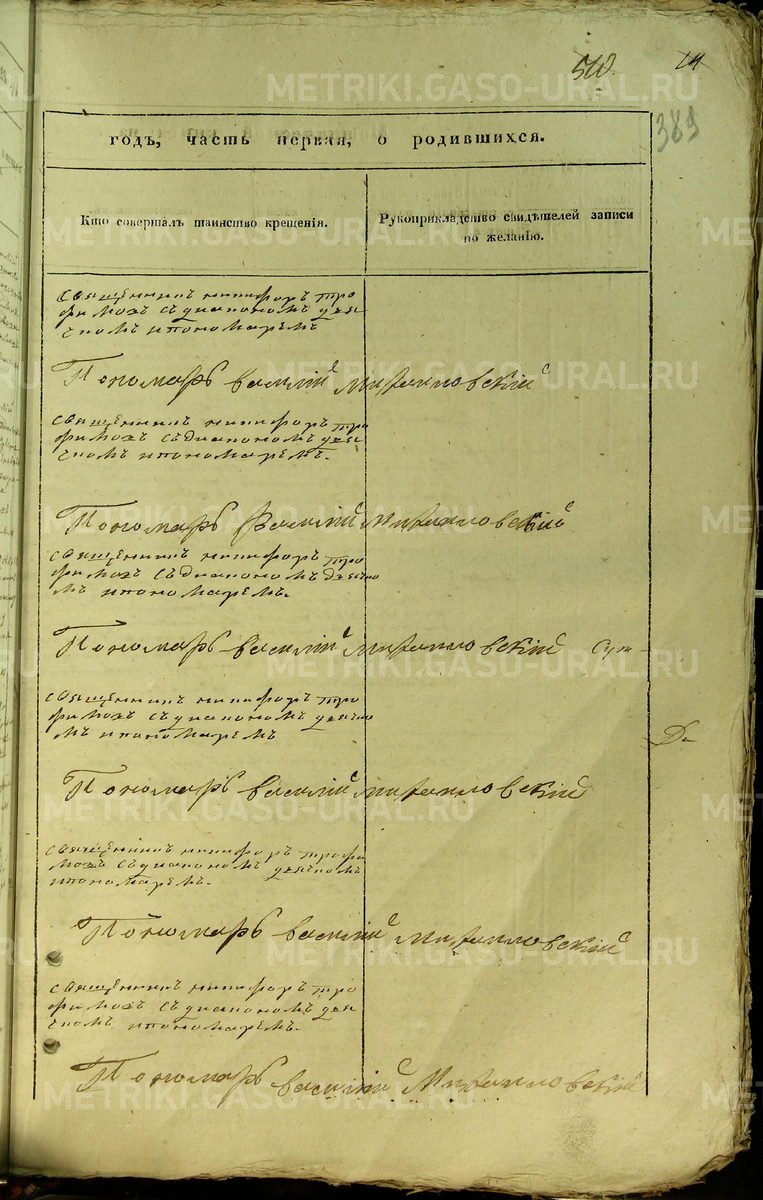 14
389
годъ, часть первая, о родившихся.
Кто совершалъ таинство крещенія.
Рукоприкладство свидѣтелей записи
по желанію.
священникъ никифоръ тро
фимовъ съ диакономъ дья
чкомъ и пономаремъ
Пономарь Василий Михаиловский
священникъ никифоръ тро
фимовъ съ диакономъ дья
чкомъ и пономаремъ.
Пономарь Василий Михаиловский
священникъ никифоръ тро
фимовъ съ диакономъ дьячко
мъ и пономаремъ.
Пономарь Василий Михаиловский
священникъ никифоръ тро
фимовъ съ диакономъ дьячко
мъ и пономаремъ
Пономарь Василий Михаиловский
священникъ никифоръ трофи
мовъ съ диакономъ дьячкомъ
и пономаремъ.
Пономарь Василий Михаиловский
священникъ никифоръ тро
фимовъ съ диакономъ дья
чкомъ и пономаремъ.
Пономарь Василий Михаиловский
METRIKI.GASO-URAL.RU